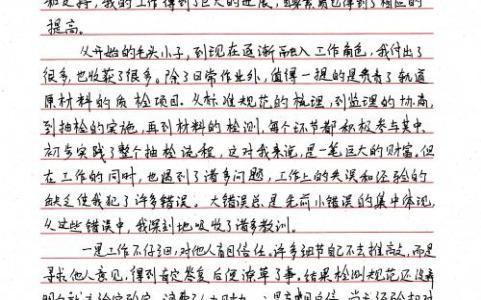 和支持,我的工作得到了巨大的进展,自身素质也得到了相应的
提高。
从开始的毛头小子,到现在逐渐融入工作角色,我付出了
很多,也收获了很多。除了日常作业外,值得一提的是负责了轨道
原材料的质检项目。从标准规范的梳理,到监理的协商,
到抽检的实施,再到材料的检测,每个环节都积极参与其中,
初步实践了整个抽检流程,这对我来说,是一笔巨大的财富。但
在工作的同时,也遇到了诸多问题,工作上的失误和经验的
缺乏使我犯了许多错误。大错误总是先前小错误的集中体现,
从这些错误中,我深刻地吸收了诸多教训。
一是工作不仔细,对他人盲目信任。许多细节自己不去推敲,而是
寻求他人意见,得到肯定答复后便潦草了事。结果检测规范还没弄